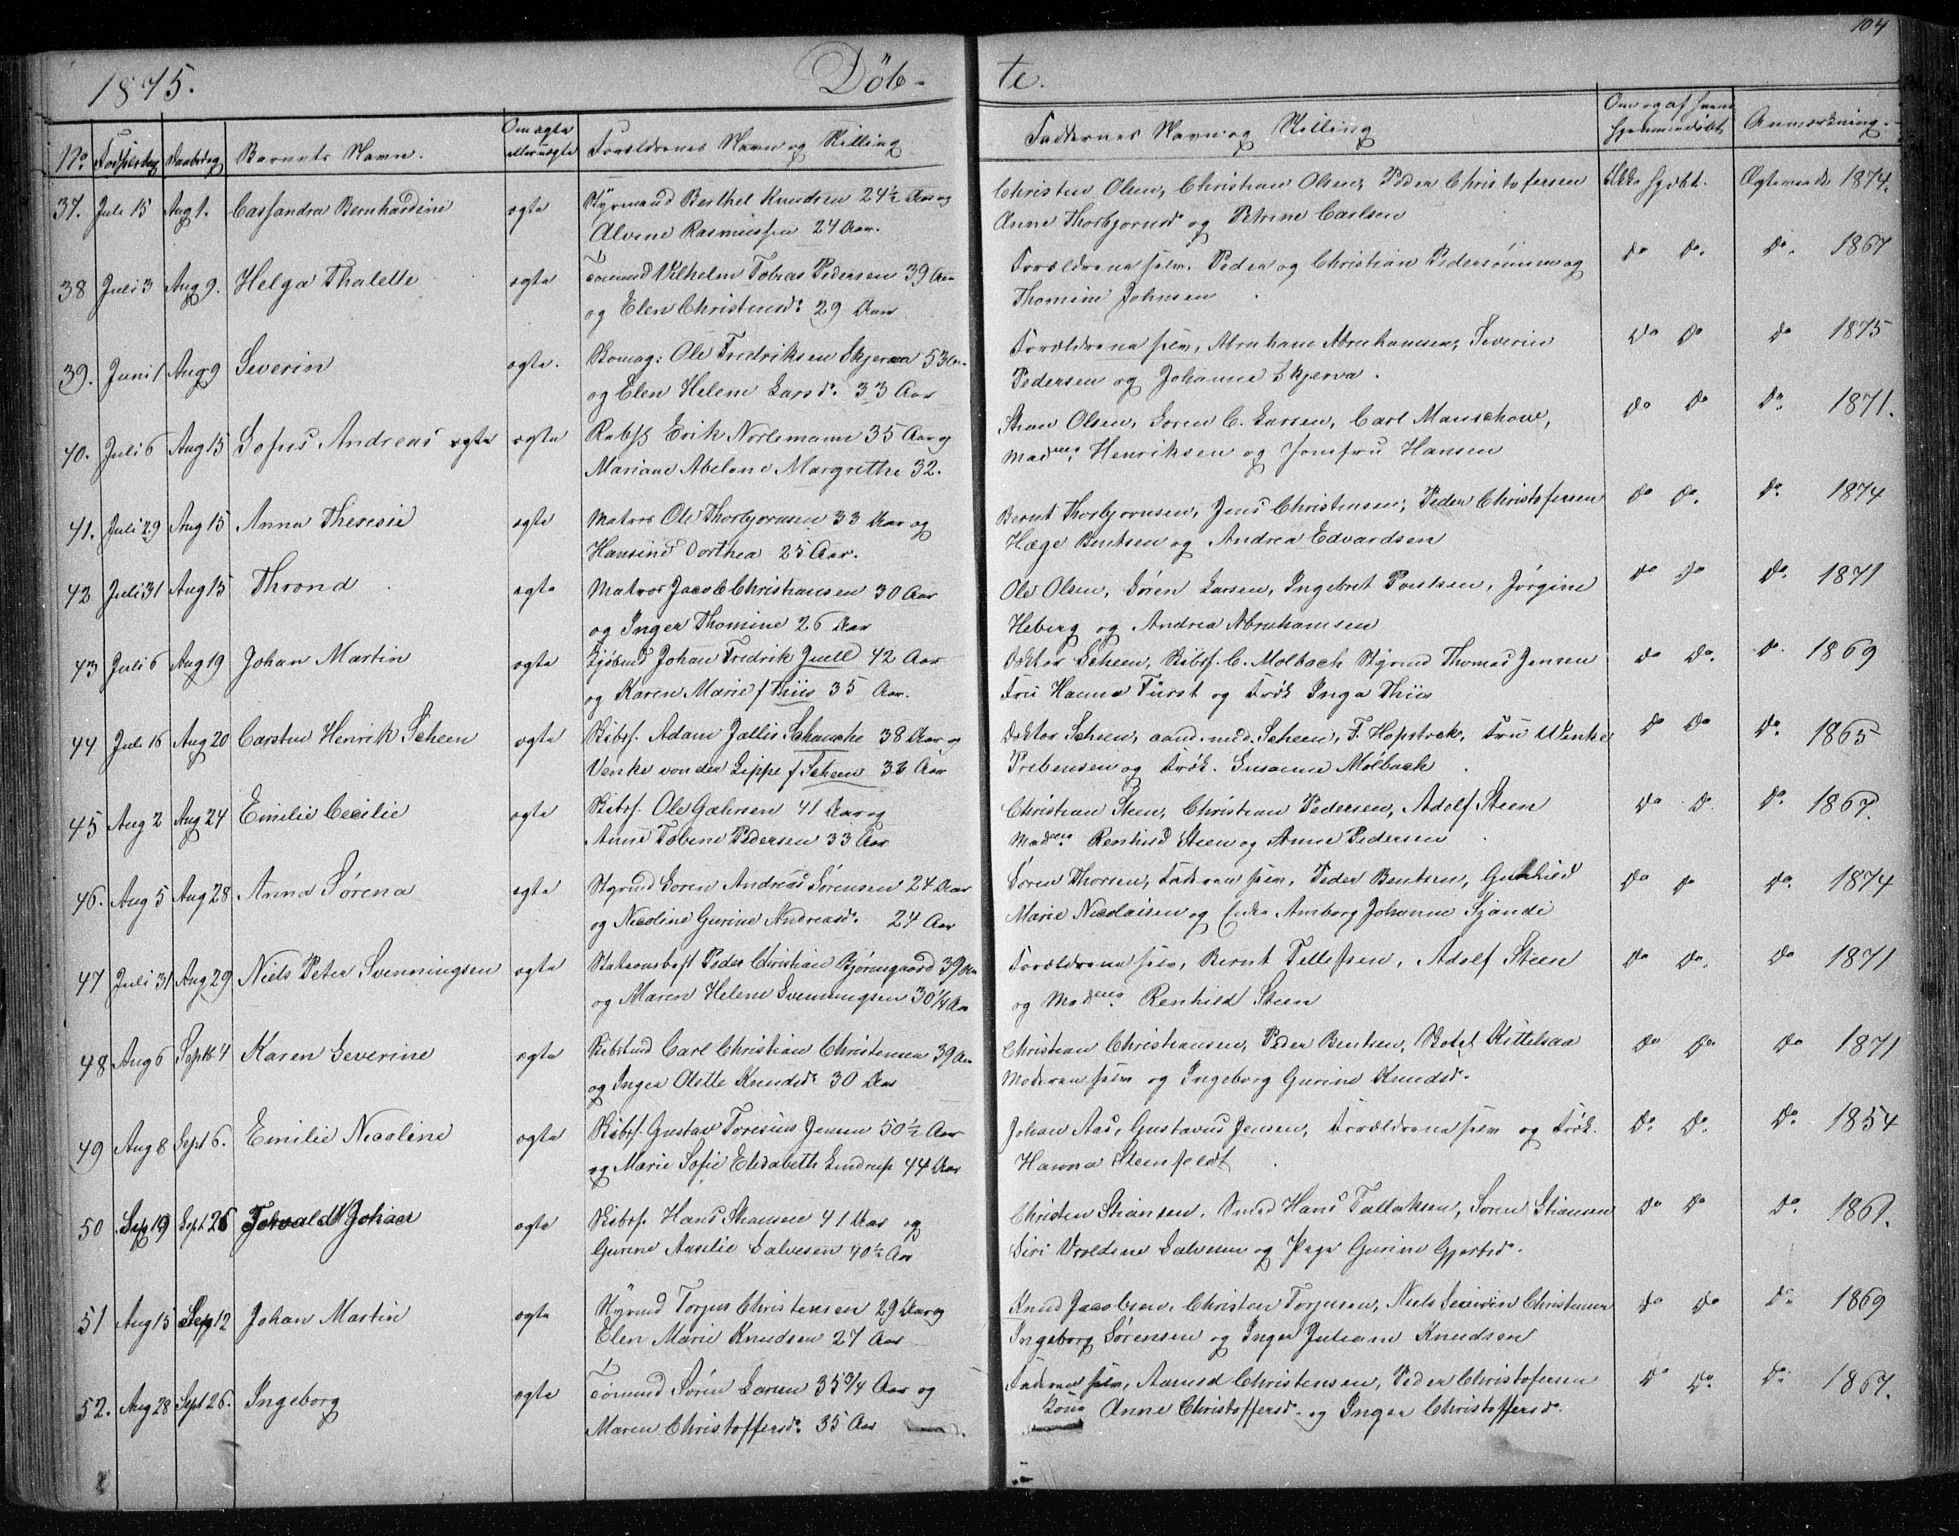 104
1875. Døb- te.
No. Fødselsdag Daabsdag Barnets Navn. Om ægte eller uægte Forældrenes Navn og Stilling Faddernes Navn og Stilling Om og af hvem hjemmedøbt Anmærkning.
37. Juli 15 Aug 1. Cassandra Bernhardine ægte Styrmand Berthel Knudsen 24½ Aar og Christen Olsen, Christian Olsen, Peder Christofersen Ikke hjdbt. Ægteviede 1874.
Alvine Rasmussen 24 Aar. Anne Thorbjørnsd. og Petrine Carlsen
38 Juli 3 Aug 9. Helga Thalette ægte Tømmd Vilhelm Tobias Pedersen 39 Aar Forældrene selv. Peder og Christian Pedersønnen og Do Do. Do. 1867
og Elen Christensd: 29 Aar Thomine Johnsen
39. Juni 1 Aug 9 Severin ægte. Ole Fredriksen Skjerva 53 Forældrene selv, Abraham Abrahamsen, Severin Do Do Do 1875
og Elen Helene Larsd: 33 Aar Pedersen og Johanne Skjerva.
40. Juli 6 Aug 15 Sofus Andreas ægte ægte Erik Norlemann 35 Aar og Stian Olsen, Søren C. Larsen, Carl Manschow, Do Do Do. 1871.
Mariane Abelone Margrethe 32. Mad Henriksen og Jomfru Hansen
41. Juli 29 Aug 15 Anna Theresie ægte Matros Ole Thorbjørnsen 33 Aar og Bernt Thorbjørnsen, Jens Christensen, Peder Christofersen Do Do. Do. 1874
Hansine Dorthea 25 Aar. Hæge Bentsen og Andrea Edvardsen
42 Juli 31 Aug 15 Thrond ægte Matros Jacob Christiansen 30 Aar Ole Olsen, Søren Larsen, Ingebret Poulsen, Jørgine Do Do Do. 1871
og Inger Thomine 26 Aar Heberg og Andrea Abrahamsen
43 Juli 6 Aug 19 Johan Martin ægte Johan Fredrik Juell 42 Aar Doktor Scheen, Skibsf. C. Molbach Styrmd Thomas Jensen Do Do. Do. 1869
og Karen Marie f Thiis 35 Aar. Fru Hanna Fürst og Frøk Inga Thiis
44 Juli 16 Aug 20 Carsten Henrik Scheen ægte Skibsf. Adam Jallis Schanche 38 Aar og Doktor Scheen, cand. med. Scheen, F. Hopstock, Fru Wenke Do Do Do. 1865
Venke von der Lippe f Scheen 33 Aar Prebensen og Frøk. Susanne Mølbach
45 Aug 2 Aug 24 Emilie Cecilie ægte Skibsf. Ole Gahrsen 41 Aar og Christian Steen, Christian Pedersen, Adolf Steen Do Do. Do. 1867.
Anne Tobine Pedersen 33 Aar Mad Renhild Steen og Anne Pedersen
46. Aug 5 Aug 28 Anna Sørena ægte Styrmd Søren Andreas Sørensen 24 Aar Søren Thorsen, Faderen selv, Peder Bentsen, Gunhild Do Do Do. 1874
og Nicoline Gurine Andreasd. 24 Aar Marie Nicolaisen og Enke Amborg Johanne Sjandi
47 Juli 31 Aug 29 Niels Peter Svenningsen ægte Stationsbest Peder Christian Bjørnegaard 39 Aar Forældrene selv, Bernt Tellefsen, Adolf Steen Do Do. Do 1871
og Maren Helene Svenningsen 30¼ Aar og Mad Renhild Steen
48 Aug 6 Septb 4 Karen Severine ægte Carl Christian Christensen 39 Aar Christian Christiansen, Peder Bentsen, Botel Kittelsaa Do Do Do 1871
og Inger Olette Knudsd. 30 Aar Moderen selv og Ingeborg Gurine Knudsd.
49 Aug 8 Sept 6. Emilie Nicoline ægte Skibsf. Gustav Toresius Jensen 50½ Aar Johan Aas, Gustavus Jensen, Forældrene selv og Frøk. Do. Do. Do. 1854
og Marie Sofie Elisabeth Lindrup 44 Aar Hanna Steenfeldt
50 Sep 19 Sept 26 Torvald Johan ægte Skibsf. Hans Stiansen 41 Aar og Christen Stiansen, Smed Hans Tallaksen, Søren Stiansen Do Do Do. 1861.
Gurine Aaselie Salvesen 40½ Aar Siri Valdine Salvesen og Gurine Gjertsd.
51 Aug 15 Sep 12 Johan Martin ægte Styrmd Torjus Christensen 29 Aar og Knud Jacobsen, Christen Torjusen, Niels Severin Christensen Do Do Do 1869
Elen Marie Knudsen 27 Aar Ingeborg Sørensen og Inger Juliane Knudsen
52. Aug 28 Sept 26. Ingeborg ægte Tømmd Søren Larsen 35¾ Aar og Faderen selv, Aamod Christensen, Peder Christofersen Do Do. Do. 1867.
Maren Christoffersd. 35 Aar Kona Anne Christoffersd. og Inger Christoffersd.